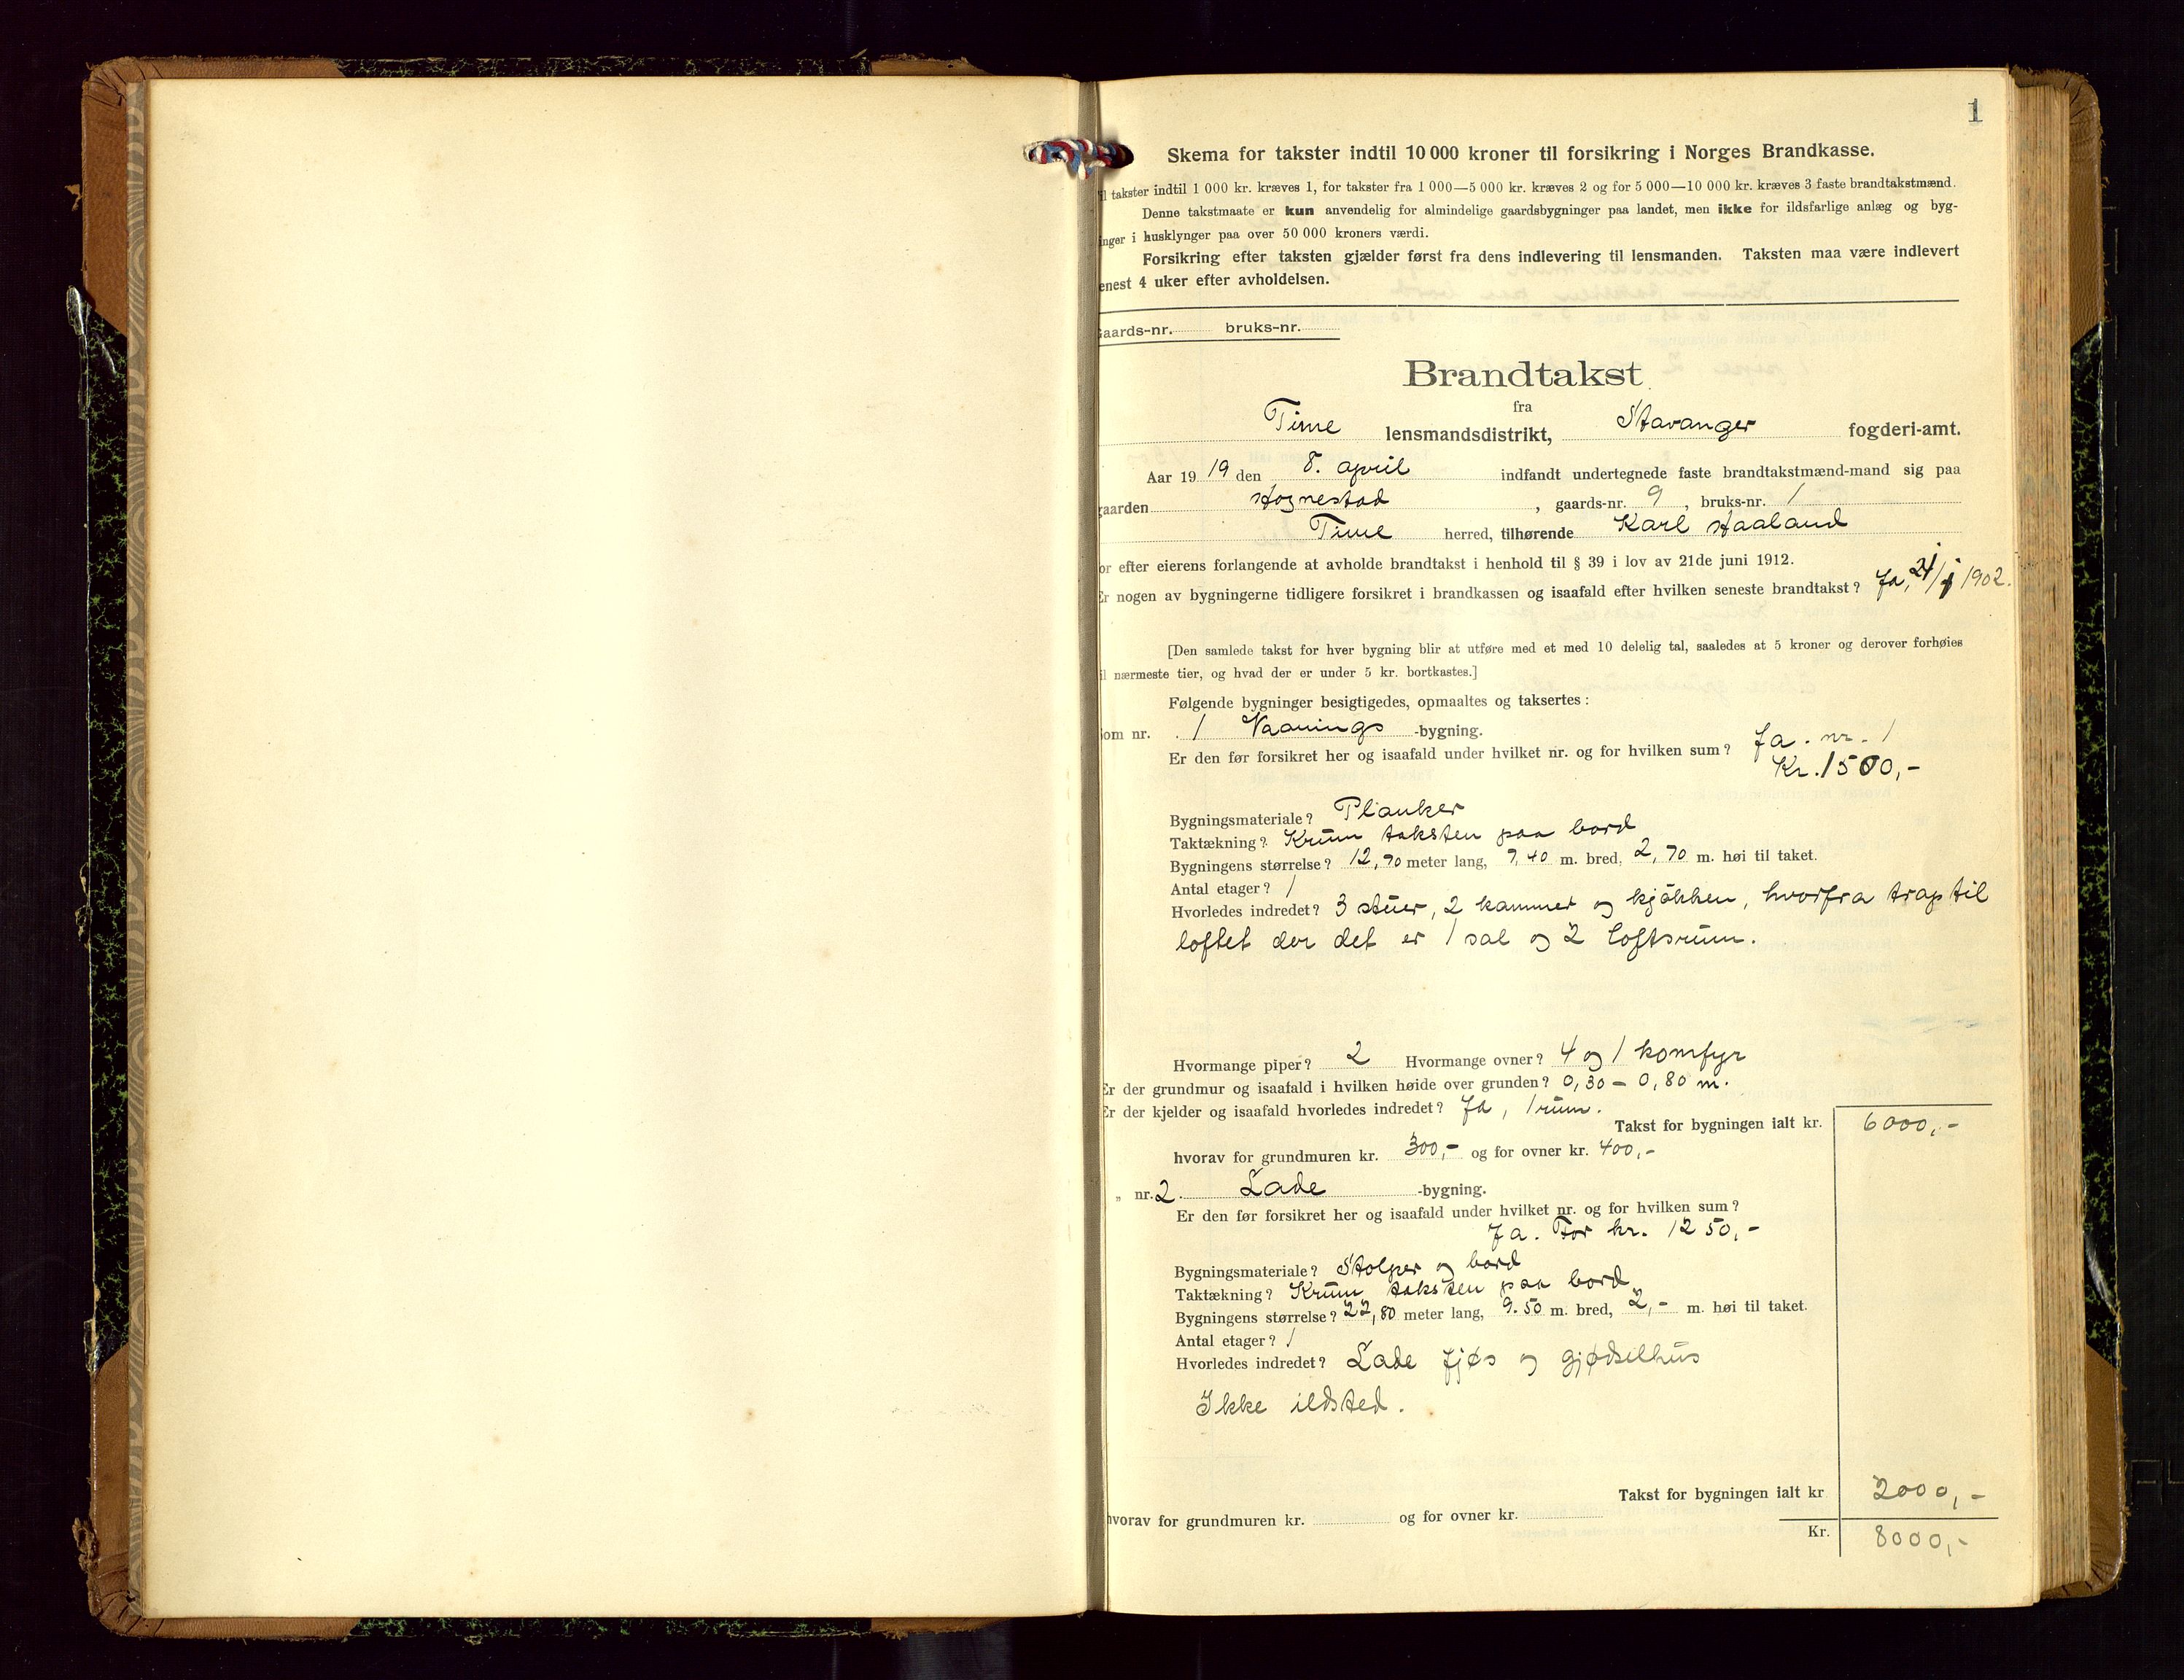 1
Skema for takster indtil 10 000 kroner til forsikring i Norges Brandkasse.
il takster indtil 1 000 kr. kræves 1, for takster fra 1 000—5 000 kr. kræves 2 og for 5 000—10 000 kr. kræves 3 faste brandtakstmænd.
Denne takstmaate er kun anvendelig for almindelige gaardsbygninger paa landet, men ikke for ildsfarlige anlæg og byg-
inger i husklynger paa over 50 000 kroners værdi.
Forsikring efter taksten gjælder først fra dens indlevering til lensmanden. Taksten maa være indlevert
enest 4 uker efter avholdelsen.
Gaards-nr. bruks-nr.
Brandtakst
fra
Time lensmandsdistrikt, Stavanger fogderi-amt.
Aar 19 19 den 8. april indfandt undertegnede faste brandtakstmænd-mand sig paa
gaarden Hognestad, gaards-nr. 9, bruks-nr. 1
Time herred, tilhørende Karl Haaland
or efter eierens forlangende at avholde brandtakst i henhold til § 39 i lov av 21de juni 1912.
Er nogen av bygningerne tidligere forsikret i brandkassen og isaafald efter hvilken seneste brandtakst? Ja, 21/1 1902.
[Den samlede takst for hver bygning blir at utføre med et med 10 delelig tal, saaledes at 5 kroner og derover forhøies
il nærmeste tier, og hvad der er under 5 kr. bortkastes.]
Følgende bygninger besigtigedes, opmaaltes og taksertes:
Som nr. 1 Vaanings-bygning.
Er den før forsikret her og isaafald under hvilket nr. og for hvilken sum? Ja. nr. 1
Kr. 1500,-
Bygningsmateriale? Planker
Taktækning? Krum taksten paa bord
Bygningens størrelse? 12,70 meter lang, 7,40 m. bred, 2,70 m. høi til taket.
Antal etager? 1
Hvorledes indredet? 3 stuer, 2 kammer og kjökken, hvorfra trap til
loftet der det er 1 sal og 2 loftsrum.
Hvormange piper? 2 Hvormange ovner? 4 og 1 komfyr
Er der grundmur og isaafald i hvilken høide over grunden? 0,30 - 0,80 m.
Er der kjelder og isaafald hvorledes indredet? Ja, 1 rum.
Takst for bygningen ialt kr. 6000,-
hvorav for grundmuren kr. 300,- og for ovner kr. 400,-
„ nr. 2. Lade-bygning.
Er den før forsikret her og isaafald under hvilket nr. og for hvilken sum?
Ja. For kr. 1250,-
Bygningsmateriale? Stolper og bord
Taktækning? Krum taksten paa bord
Bygningens størrelse? 22,80 meter lang, 9.50 m. bred, 2,- m. høi til taket.
Antal etager? 1
Hvorledes indredet? Lade fjøs og gjødselhus
Ikke ildsted.
Takst for bygningen ialt kr 2000,-
hvorav for grundmuren kr. og for ovner kr.
Kr. 8000,-